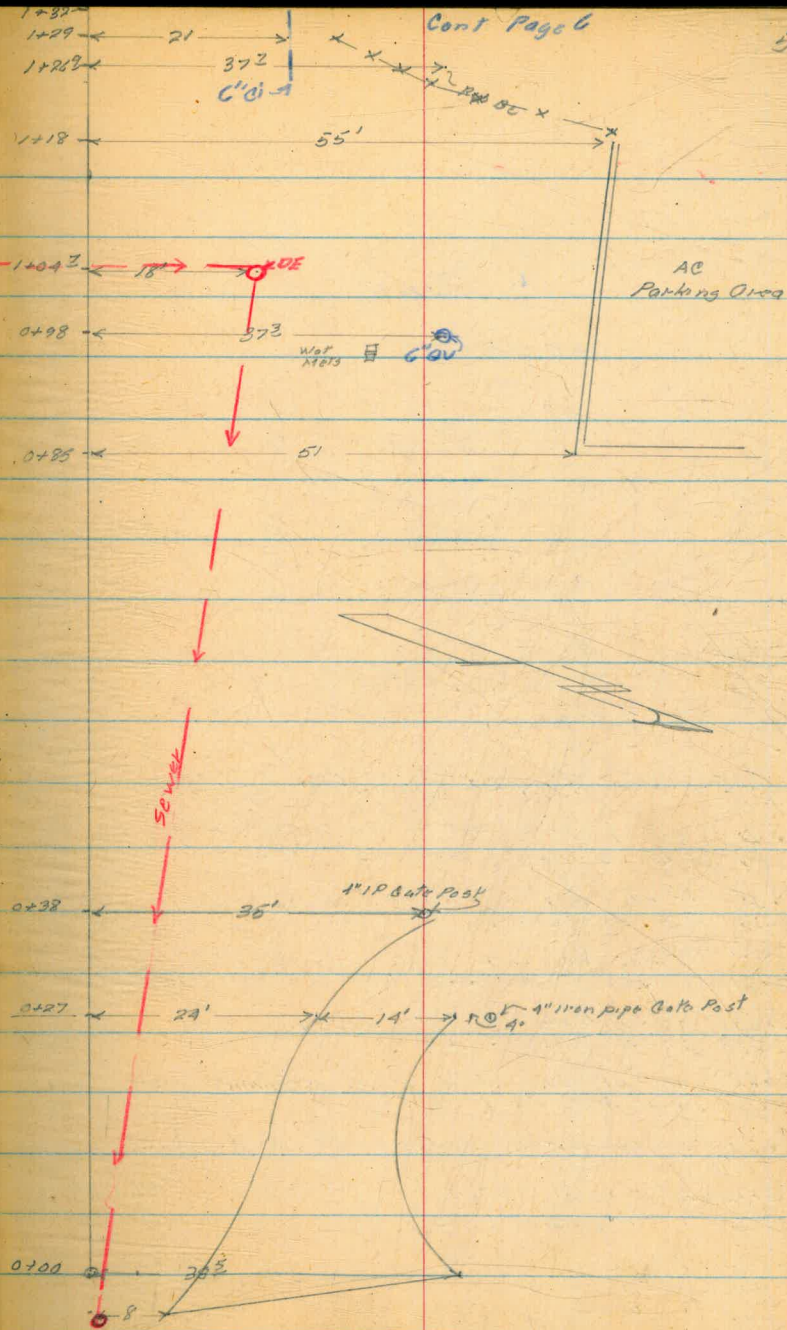 1+32
Cont Page 6
5
1+29 21
1+26⁹ 37²
6"CI
1+18 55'
1+04⁷ 18' DE
AC
Parking Area
0+98 37³
Wat
Mets
6"GV
0+85 51
Sewer
4" IP Gate Post
0+38 35'
0+27 24' 14' 4" iron pipe Gate Post
4'
0+00 38⁵
8